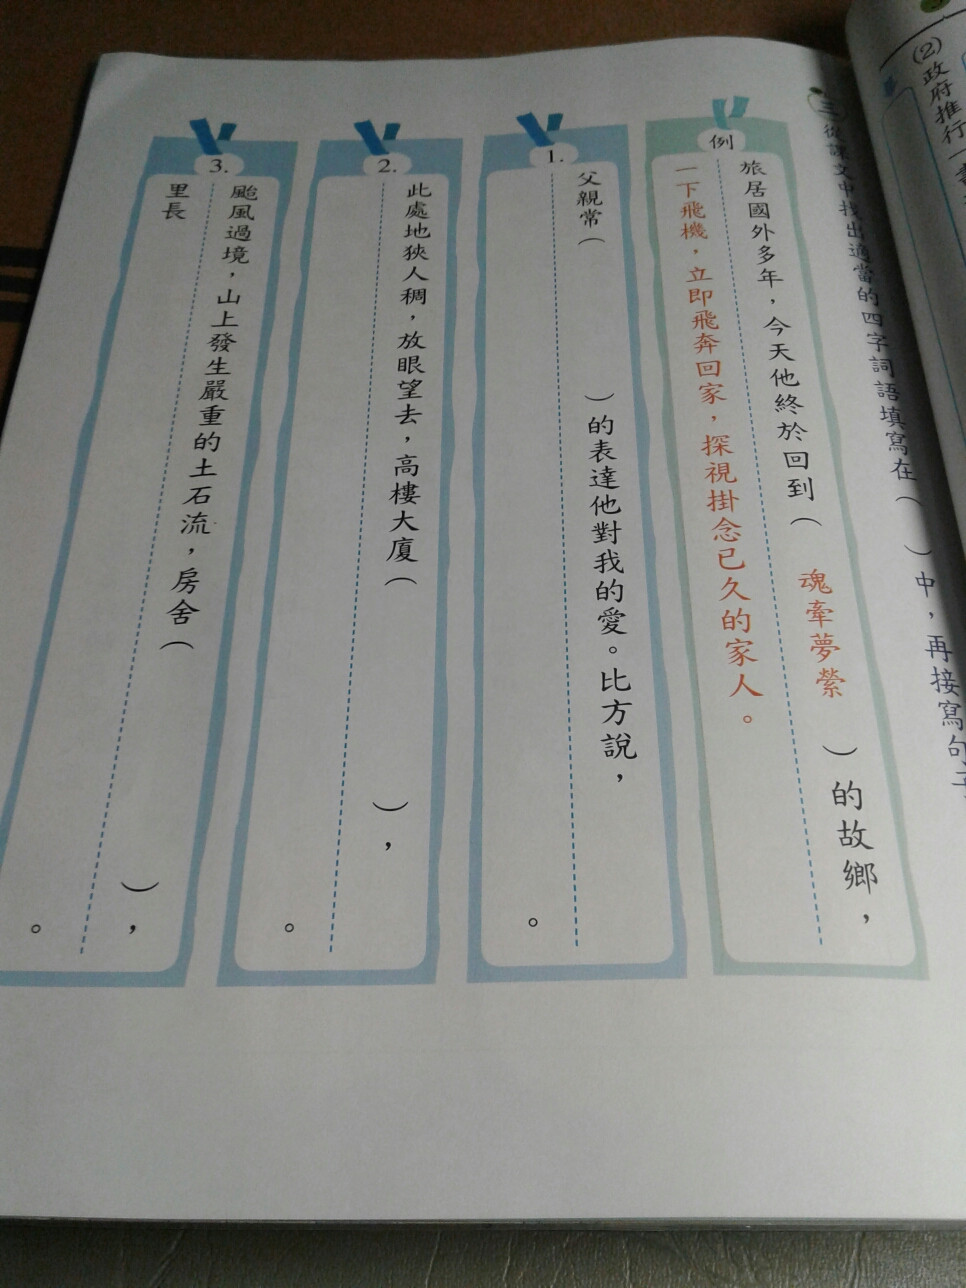 (2)政府推行一
三從課文中找出適當的四字詞語填寫在（　）中，再接寫句子
例
旅居國外多年，今天他終於回到（魂牽夢縈）的故鄉，
一下飛機，立即飛奔回家，探視掛念已久的家人。
1.
父親常（　）的表達他對我的愛。比方說，
。
2.
此處地狹人稠，放眼望去，高樓大廈（　），
。
3.
颱風過境，山上發生嚴重的土石流，房舍（　），
里長
。